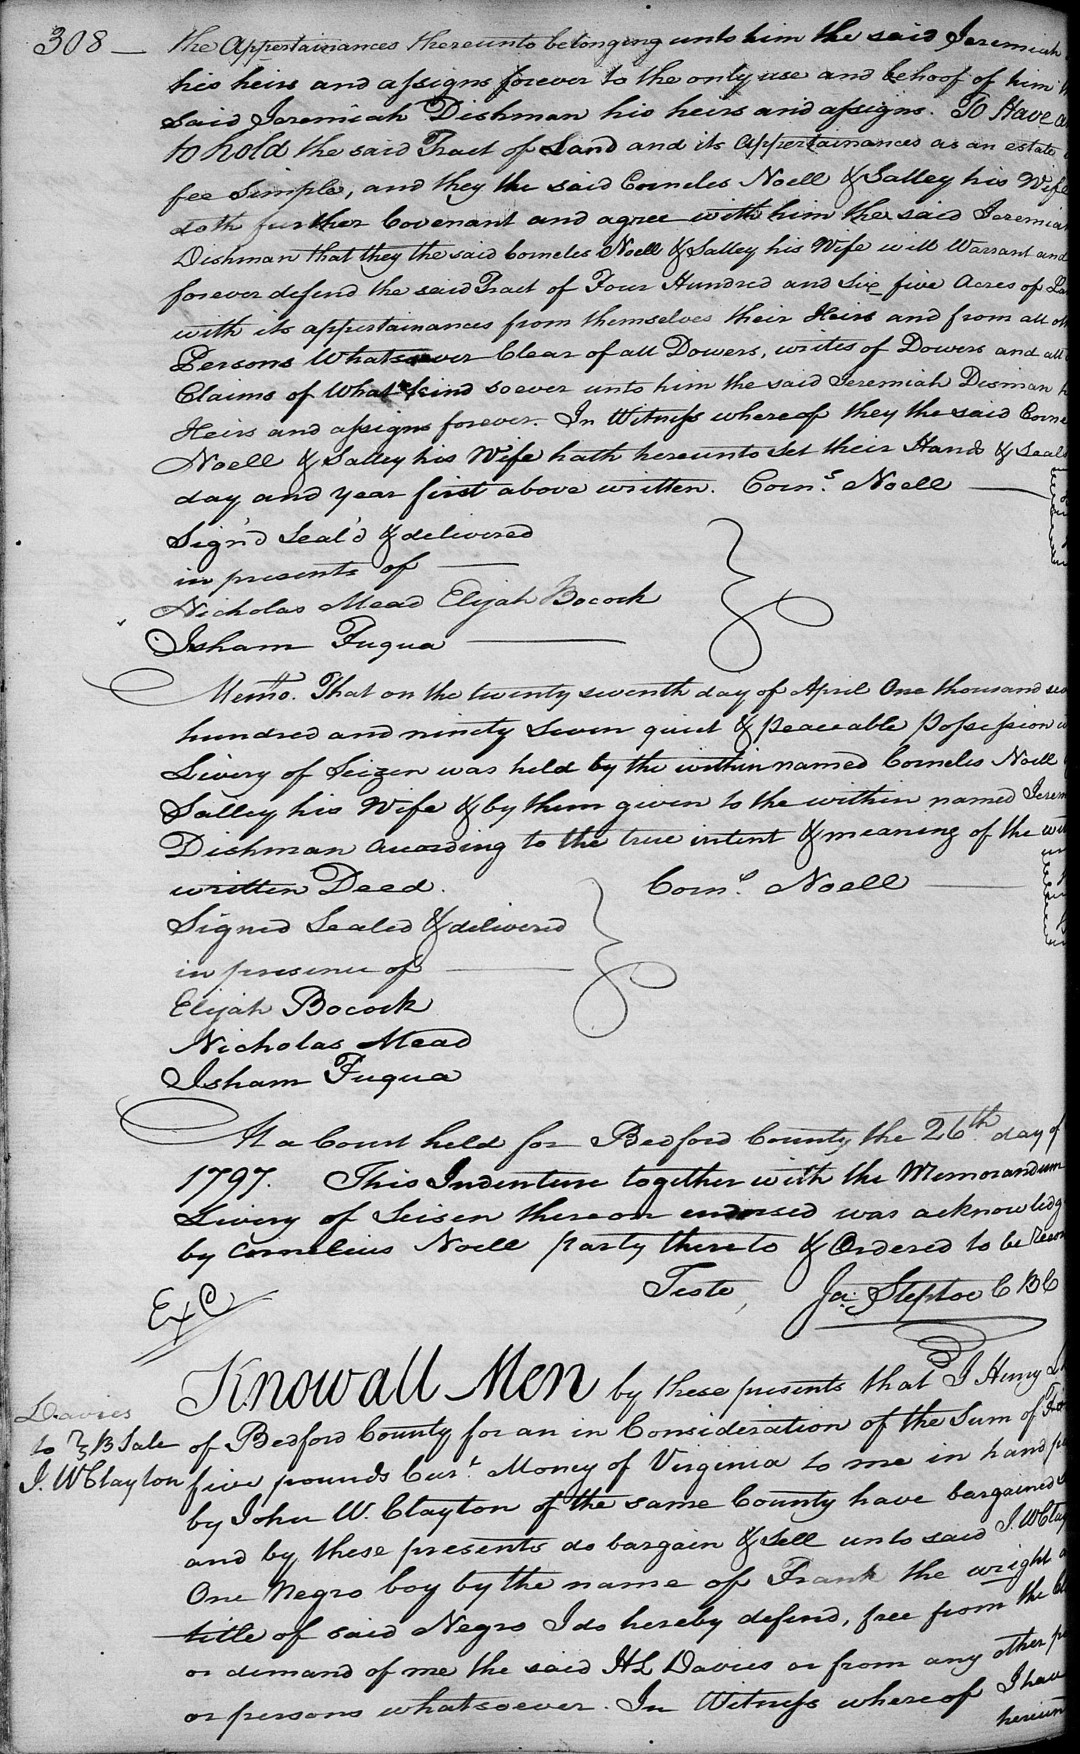 308 — the Appertainances thereunto belonging unto him the said Jeremiah
his heirs and assigns forever to the only use and behoof of him
said Jeremiah Dishman his heirs and assigns. To Have
to hold the said Tract of Land and its Appertainances as an estate
fee Simple, and they the said Corneles Noell & Salley his Wife
doth further Covenant and agree with him the said Jeremiah
Dishman that they the said Corneles Noell & Salley his Wife will Warrant and
forever defend the said Tract of Four Hundred and Six five Acres of
with its appertainances from themselves their Heirs and from all
Persons Whatsoever Clear of all Dowers, writes of Dowers and all
Claims of What kind soever unto him the said Jeremiah Disman
Heirs and assigns forever. In Witness whereof they the said
Noell & Salley his Wife hath hereunto set their Hands & Seals
day and year first above written. Corns. Noell —
Sign'd Seal'd & delivered
in presents of —
Nicholas Mead Elijah Bocock
Isham Fuqua —
Memo. That on the twenty seventh day of April One thousand
hundred and ninety seven quiet & peaceable Possession
Livery of Seizen was held by the within named Corneles Noell
Salley his Wife & by them given to the within named
Dishman according to the true intent & meaning of the
written Deed. Corns. Noell —
Signed Sealed & delivered
in presence of —
Elijah Bocock
Nicholas Mead
Isham Fuqua
At a Court held for Bedford County the 26th day of
1797. This Indenture together with the Memorandum
Livery of Seisen thereon endorsed was acknowledg
by Cornelius Noell party thereto & Ordered to be
Teste, Ja: Steptoe C B C
Exd
Know all Men by these presents that I Henry
Davies
to } B Sale
J. W Clayton
of Bedford County for an in Consideration of the Sum of
five pounds Curt. Money of Virginia to me in hand
by John W. Clayton of the same County have bargained
and by these presents do bargain & Sell unto said J. W
One Negro boy by the name of Frank the wright
title of said Negro I do hereby defend, free from the
or demand of me the said H L Davies or from any other
or persons whatsoever. In Witness whereof I have
hereun